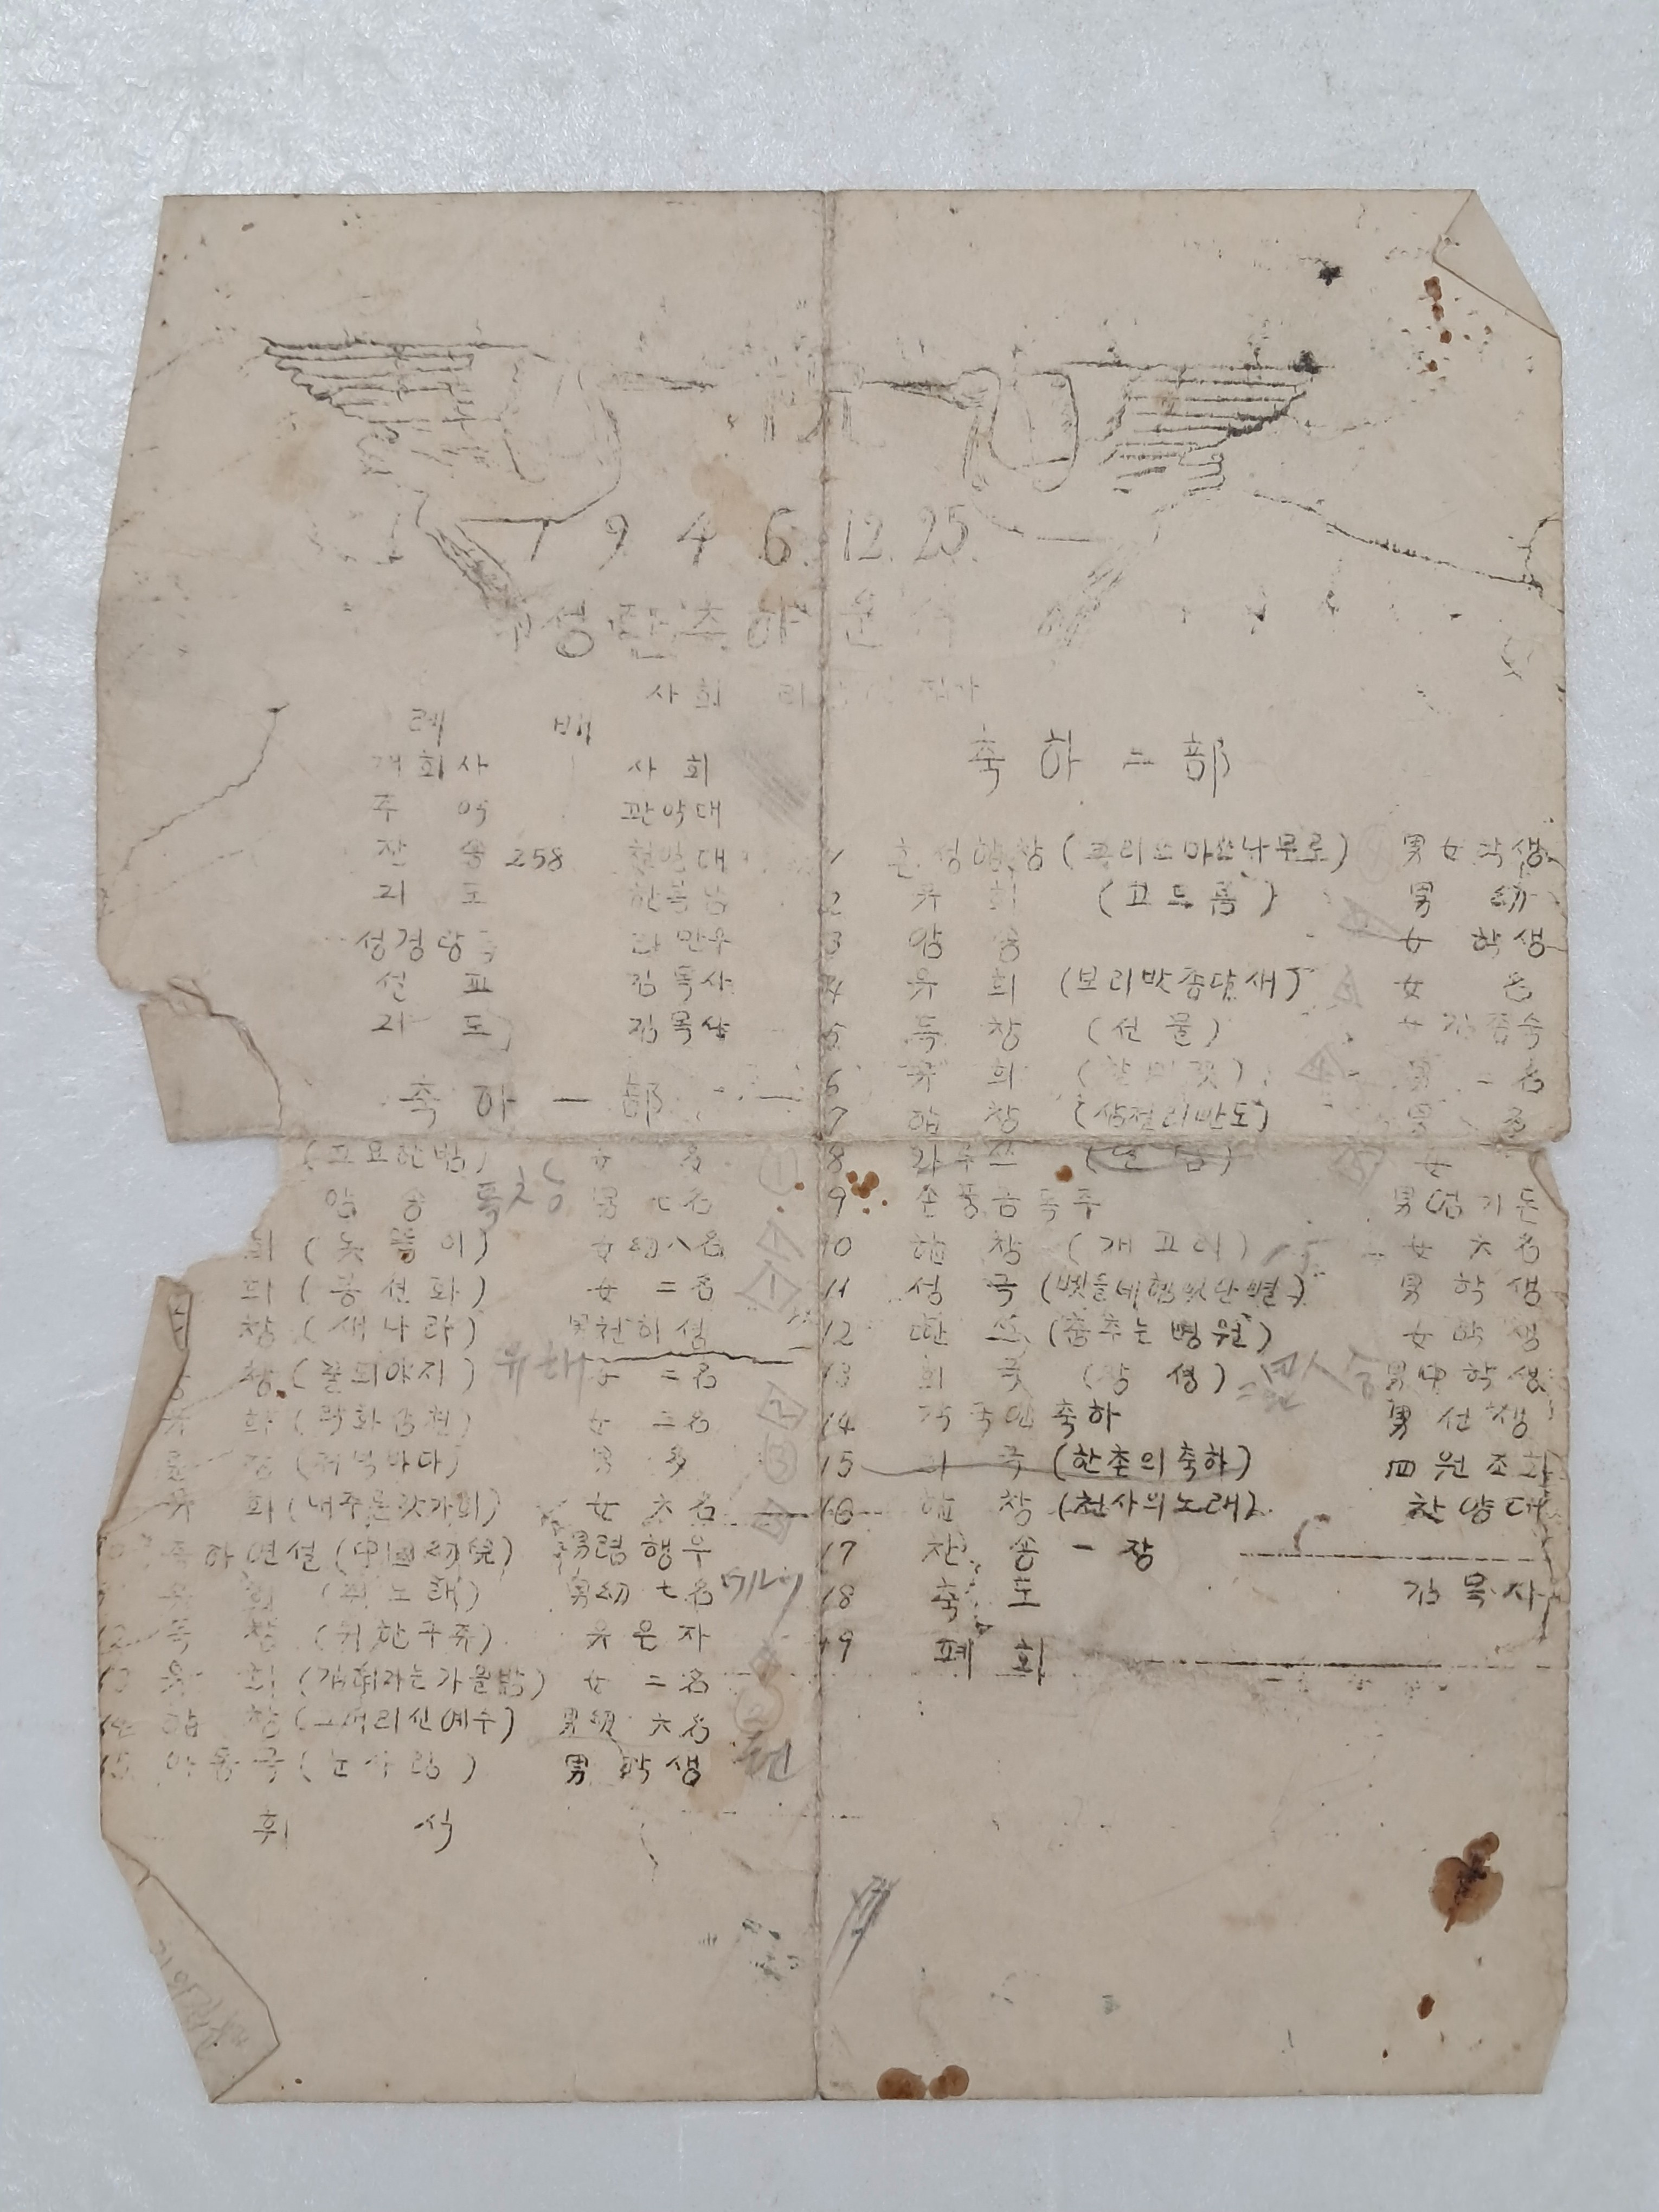 1946. 12. 25.
성탄축하순
사회
례 배
개회사 사회
주악 관악대
찬송 258 찬양대
기도
성경랑독
설교 김목사
기도 김목사
축하 一部
(고요한밤) 女 多
암송 독창 男 七名
희 (눗들이) 女幼八名
희 (봉선화) 女 二名
창 (새나라) 男
창 (꽃피야지) 유해 女 二名
희 (락화암천) 女 二名
창 (저녁바다) 男 多
유희 (내주은갓가히) 女 六名
축하연설 (中國幼兒) 男림행우
유희 (쥐노래) 男幼 七名 ウルツ
12 독창 (귀한구쥬) 유은자
13 유희 (개가자는가을밤) 女 二名
14 합창 (그어리신예수) 男級 六名
15 아동극 (눈사람) 男학생
휴 식
축하 二部
1 혼성합창 (크리쓰마쓰나무로) 男女학생
2 유희 (고드름) 男 幼
3 암송 女 학생
4 유희 (보리밧종달새) 女 名
5 독창 (선물) 女김종숙
6 유희 男 二名
7 합창 (삼천리반도) 男 多
8 女
9 손풍금독주 男염기돈
10 합창 (개고리) 女 六名
11 성극 (벳을네헴의난별) 男 학생
12 딴쓰 (춤추는병원) 女학생
13 희극 男中학생
14 각국인축하 男선생
15 극 (한촌의축하) 四원조화
16 합창 (천사의노래) 찬양대
17 찬송 一장
18 축도 김목사
19 폐회